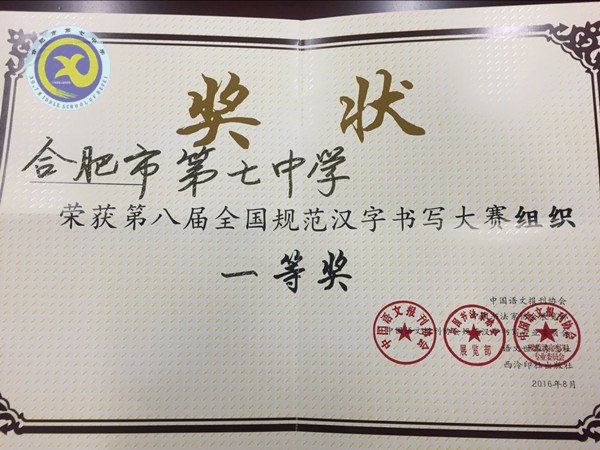 合肥市第七中学
NO.7 MIDDLE SCHOOL OF HEFEI
奖 状
合肥市第七中学
荣获第八届全国规范汉字书写大赛组织
一等奖
中国语文报刊协会
西泠印社出版社
2016年8月
中国语文报刊协会
展览部
中国语文报刊协会
专业委员会